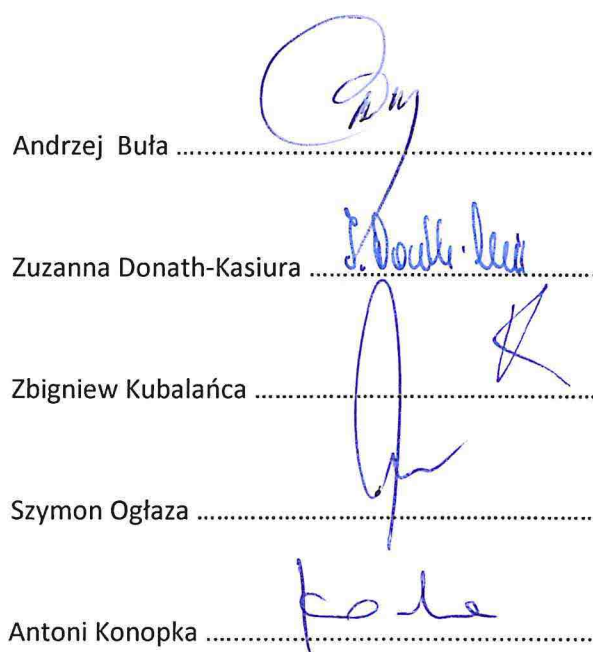 Andrzej Buła ..........
Zuzanna Donath-Kasiura ..........
Zbigniew Kubalańca ..........
Szymon Ogłaza ..........
Antoni Konopka ..........